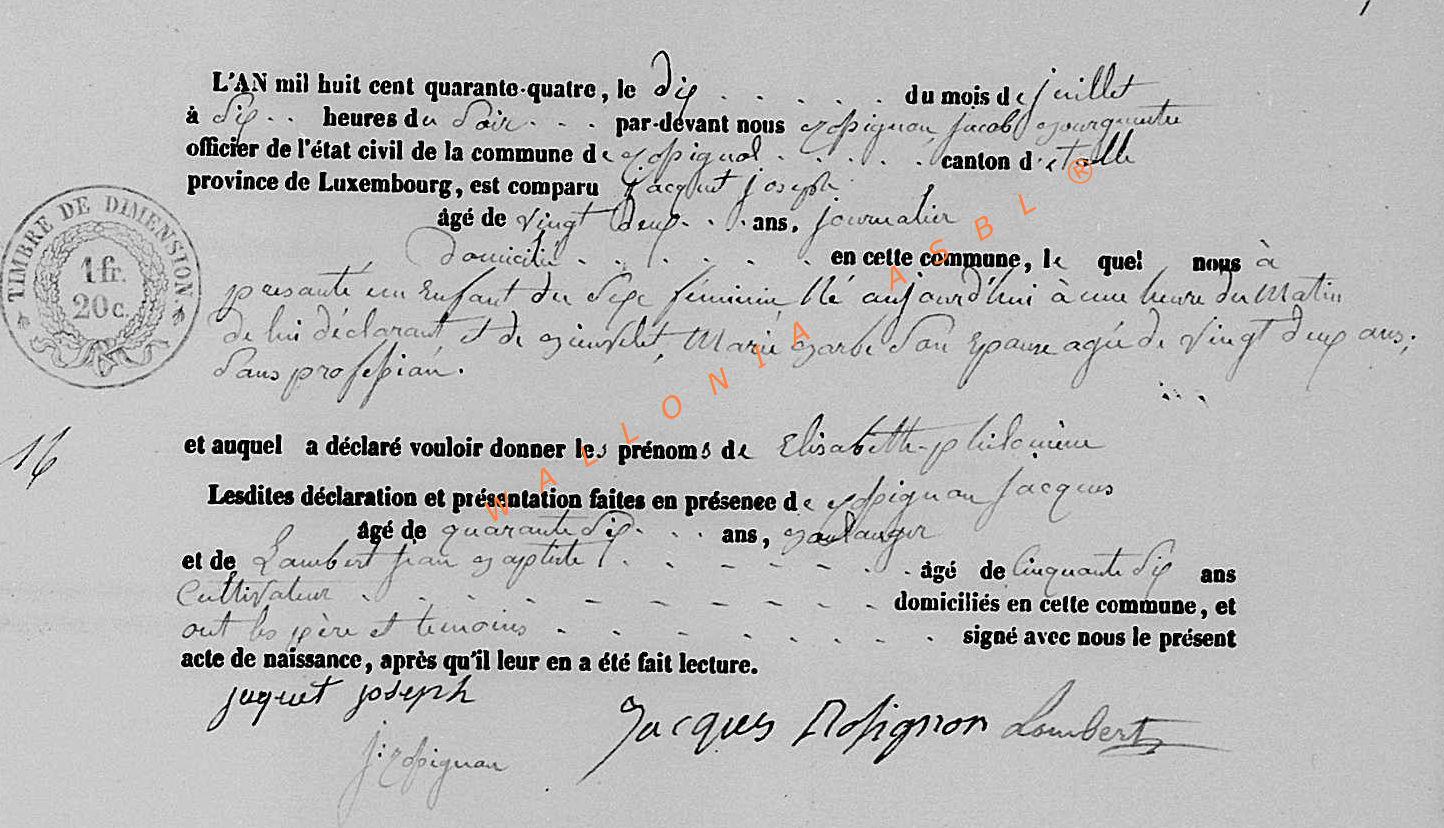 L'AN mil huit cent quarante-quatre, le dix . . . . . du mois de juillet
à Six . . heures du Soir . . . par-devant nous Rossignon, Jacob, Bourgmestre
officier de l'état civil de la commune de Rossignol . . . . . canton d'Etalle
province de Luxembourg, est comparu Jacquet joseph
âgé de vingt deux . . . ans, journalier
Domicilié . . . . . . en cette commune, le quel nous à
presanté un Enfant du Sexe féminin, Né aujourd'hui à une heure du Matin
de lui déclarant, et de Marie Barbe Son Epouse agée de Vingt deux ans;
Sans profession.
16
et auquel a déclaré vouloir donner les prénoms de Elisabeth-philomène
Lesdites déclaration et présentation faites en présence de Rossignon Jacques
âgé de quarante Six . . . ans, Boulanger
et de Lambert jean Baptiste . . . . . . . âgé de Cinquante Six ans
Cultivateur . - - - - - - - - domiciliés en cette commune, et
ont les père et temoins . - - - - - - - - signé avec nous le présent
acte de naissance, après qu'il leur en a été fait lecture.
jaquet joseph
Jacques Rossignon Lambert
J: Rossignon
TIMBRE DE DIMENSION.
1 fr.
20 c.
WALLONIA ASBL ®